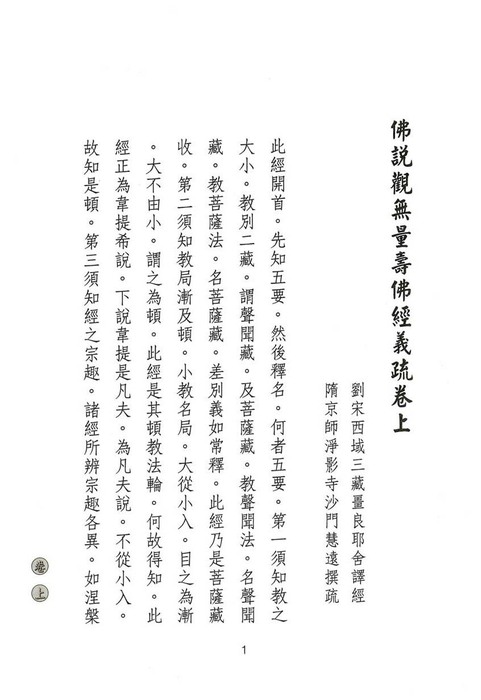 佛說觀無量壽佛經義疏卷上
劉宋西域三藏畺良耶舍譯經
隋京師淨影寺沙門慧遠撰疏
此經開首。先知五要。然後釋名。何者五要。第一須知教之
大小。教別二藏。謂聲聞藏。及菩薩藏。教聲聞法。名聲聞
藏。教菩薩法。名菩薩藏。差別義如常釋。此經乃是菩薩藏
收。第二須知教局漸及頓。小教名局。大從小入。目之為漸
。大不由小。謂之為頓。此經是其頓教法輪。何故得知。此
經正為韋提希說。下說韋提是凡夫。為凡夫說。不從小入。
故知是頓。第三須知經之宗趣。諸經所辨宗趣各異。如涅槃
卷上
1